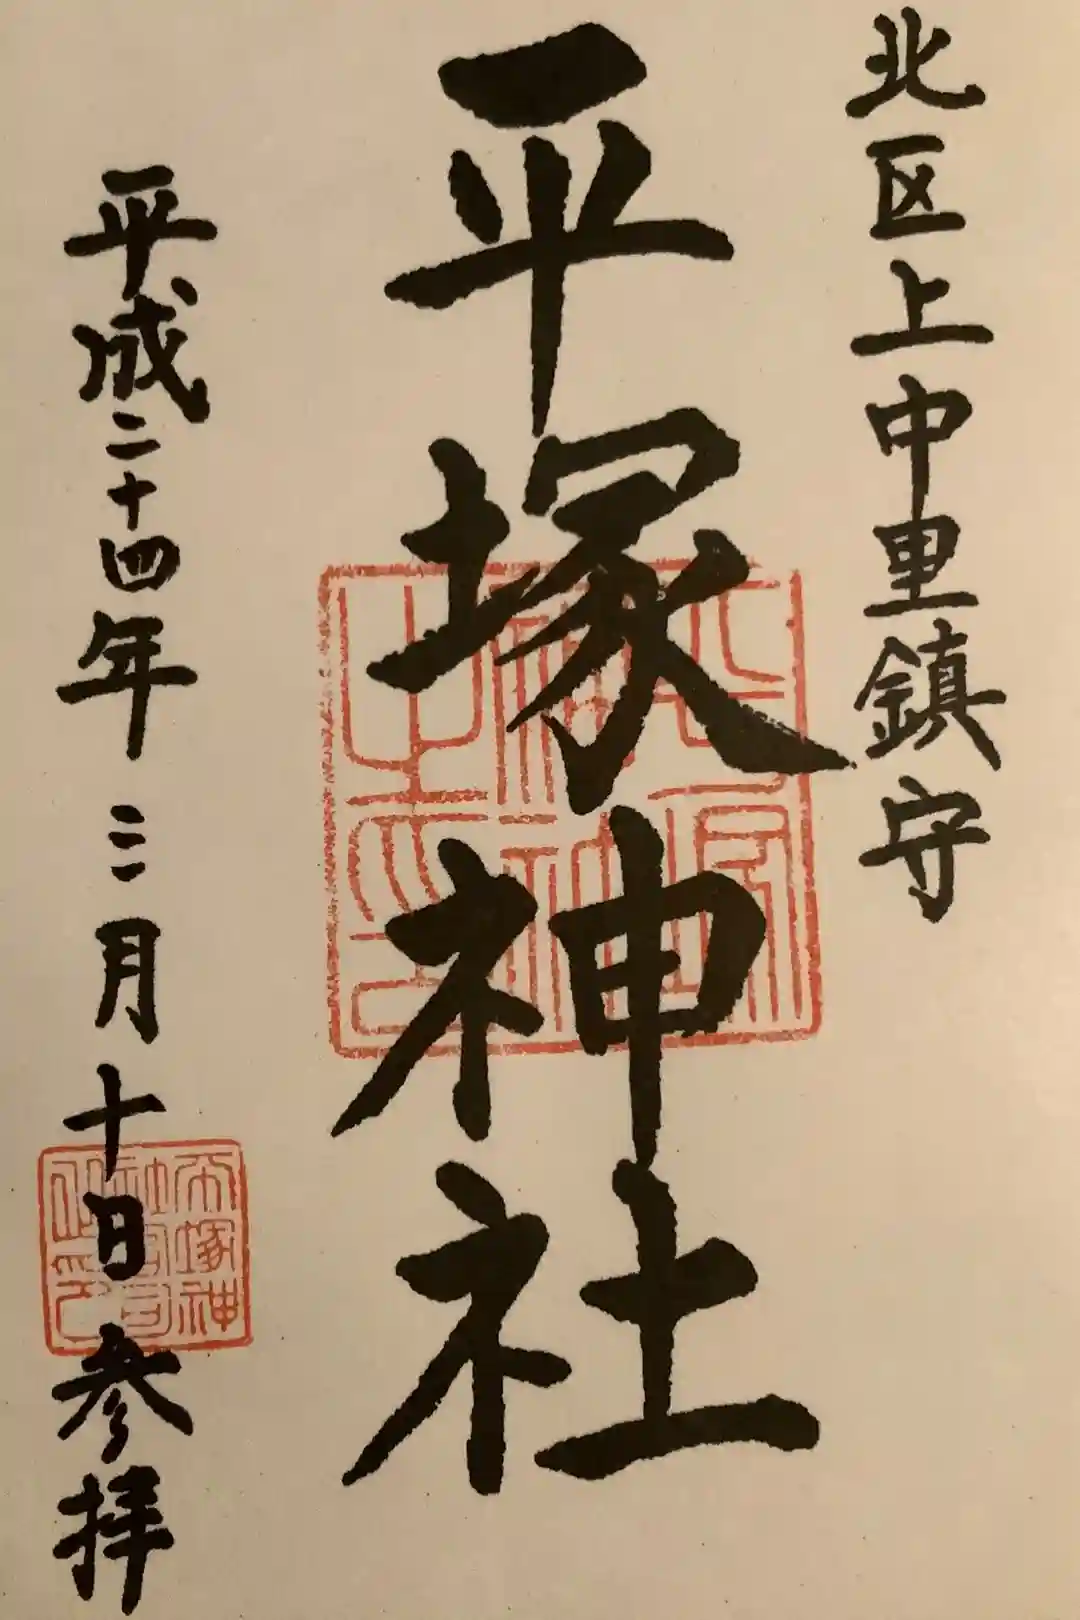 北区上中里鎮守
平塚神社
平成二十四年三月十日参拝
平塚神社之印
平塚神社宮司之印